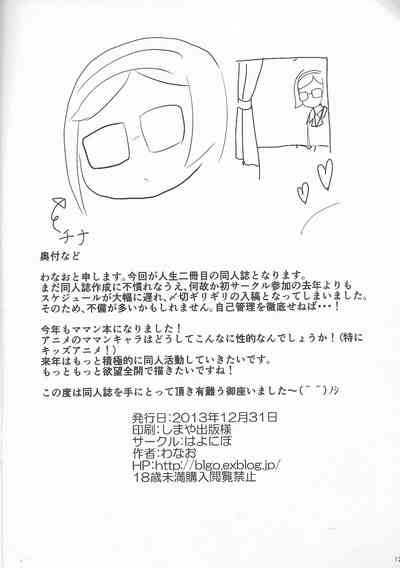 チナ
奥付など
わなおと申します。今回が人生二冊目の同人誌となります。
まだ同人誌作成に不慣れなうえ、何故か初サークル参加の去年よりも
スケジュールが大幅に遅れ、〆切ギリギリの入稿となってしまいました。
そのため、不備が多いかもしれません。自己管理を徹底せねば・・・！
今年もママン本になりました！
アニメのママンキャラはどうしてこんなに性的なんでしょうか！(特に
キッズアニメ！)
来年はもっと積極的に同人活動していきたいです。
もっともっと欲望全開で描きたいですね！
この度は同人誌を手にとって頂き有難う御座いました～(⌒⌒)ﾉｼ
発行日:2013年12月31日
印刷:しまや出版様
サークル:はよにぽ
作者:わなお
HP:http://blgo.exblog.jp/
18歳未満購入閲覧禁止